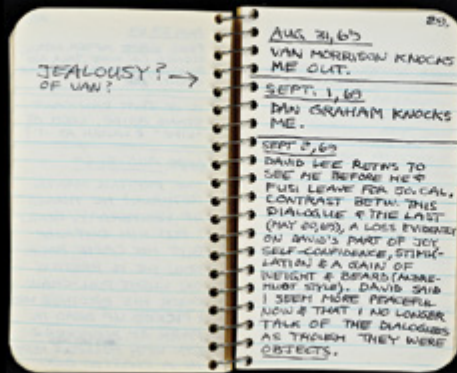 JEALOUSY? →
OF VAN?
AUG 31, 69
VAN MORRISON KNOCKS
ME OUT.
SEPT. 1, 69
DAN GRAHAM KNOCKS
ME.
SEPT 2, 69
DAVID LEE RETNS TO
SEE ME BEFORE HE &
FUSI LEAVE FOR SO. CAL.
CONTRAST BETW. THIS
DIALOGUE & THE LAST
A LOSS EVIDENTLY
ON DAVID'S PART OF JOY
SELF-CONFIDENCE, STIMU-
LATION & A GAIN OF
WEIGHT & BEARD
STYLE). DAVID SAID
I SEEM MORE PEACEFUL
NOW & THAT I NO LONGER
TALK OF THE DIALOGUES
AS THOUGH THEY WERE
OBJECTS.